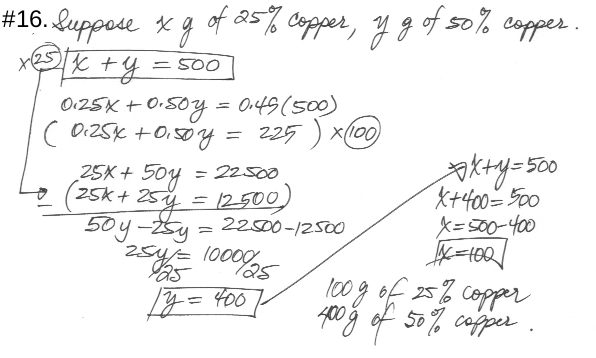 #16. Suppose x g of 25% copper, y g of 50% copper.
×25 x + y = 500
0.25x + 0.50y = 0.45(500)
( 0.25x + 0.50y = 225 ) × 100
25x + 50y = 22500
- (25x + 25y = 12500)
50y - 25y = 22500 - 12500
25y/25 = 10000/25
y = 400
x + y = 500
x + 400 = 500
x = 500 - 400
x = 100
100 g of 25% copper
400 g of 50% copper.